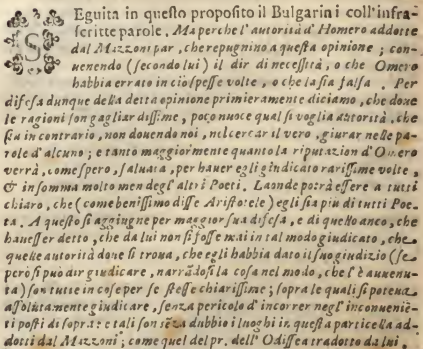 SEguita in questo proposito il Bulgarini coll'infra-
scritte parole. Ma perche l'autorità d'Homero addotte
dal Mazzoni par, che repugnino a questa opinione; con-
uenendo (secondo lui) il dir di necessità, o che Omero
habbia errato in ciò spesse volte, o che la sia falsa. Per
difesa dunque della detta opinione primieramente diciamo, che doue
le ragioni son gagliardissime, poco nuoce qual si voglia autorità, che
sia in contrario, non douendo noi, nel cercar il vero, giurar nelle pa-
role d'alcuno; e tanto maggiormente quanto la riputazion d'Omero
verrà, come spero, saluata, per hauer egli giudicato rarissime volte,
& insomma molto men degl'altri Poeti. Laonde potrà essere a tutti
chiaro, che (come benissimo disse Aristotele) egli sia piu di tutti Poe-
ta. A questo si aggiugne per maggior sua difesa, e di quello anco, che
hauesser detto, che da lui non si fosse mai in tal modo giudicato, che
quelle autorità doue si troua, che egli habbia dato il suo giudizio (se
però si può dir giudicare, narrãdosi la cosa nel modo, che l'è auuenu-
ta) son tutte in cose per se stesse chiarissime; sopra le quali si poteua
assolutamente giudicare, senza pericolo d'incorrer negl'inconueniē-
ti posti di sopra: e tali son sēza dubbio i luoghi in questa particella ad-
dotti dal Mazzoni; come quel del pr. dell'Odissea tradotto da lui.